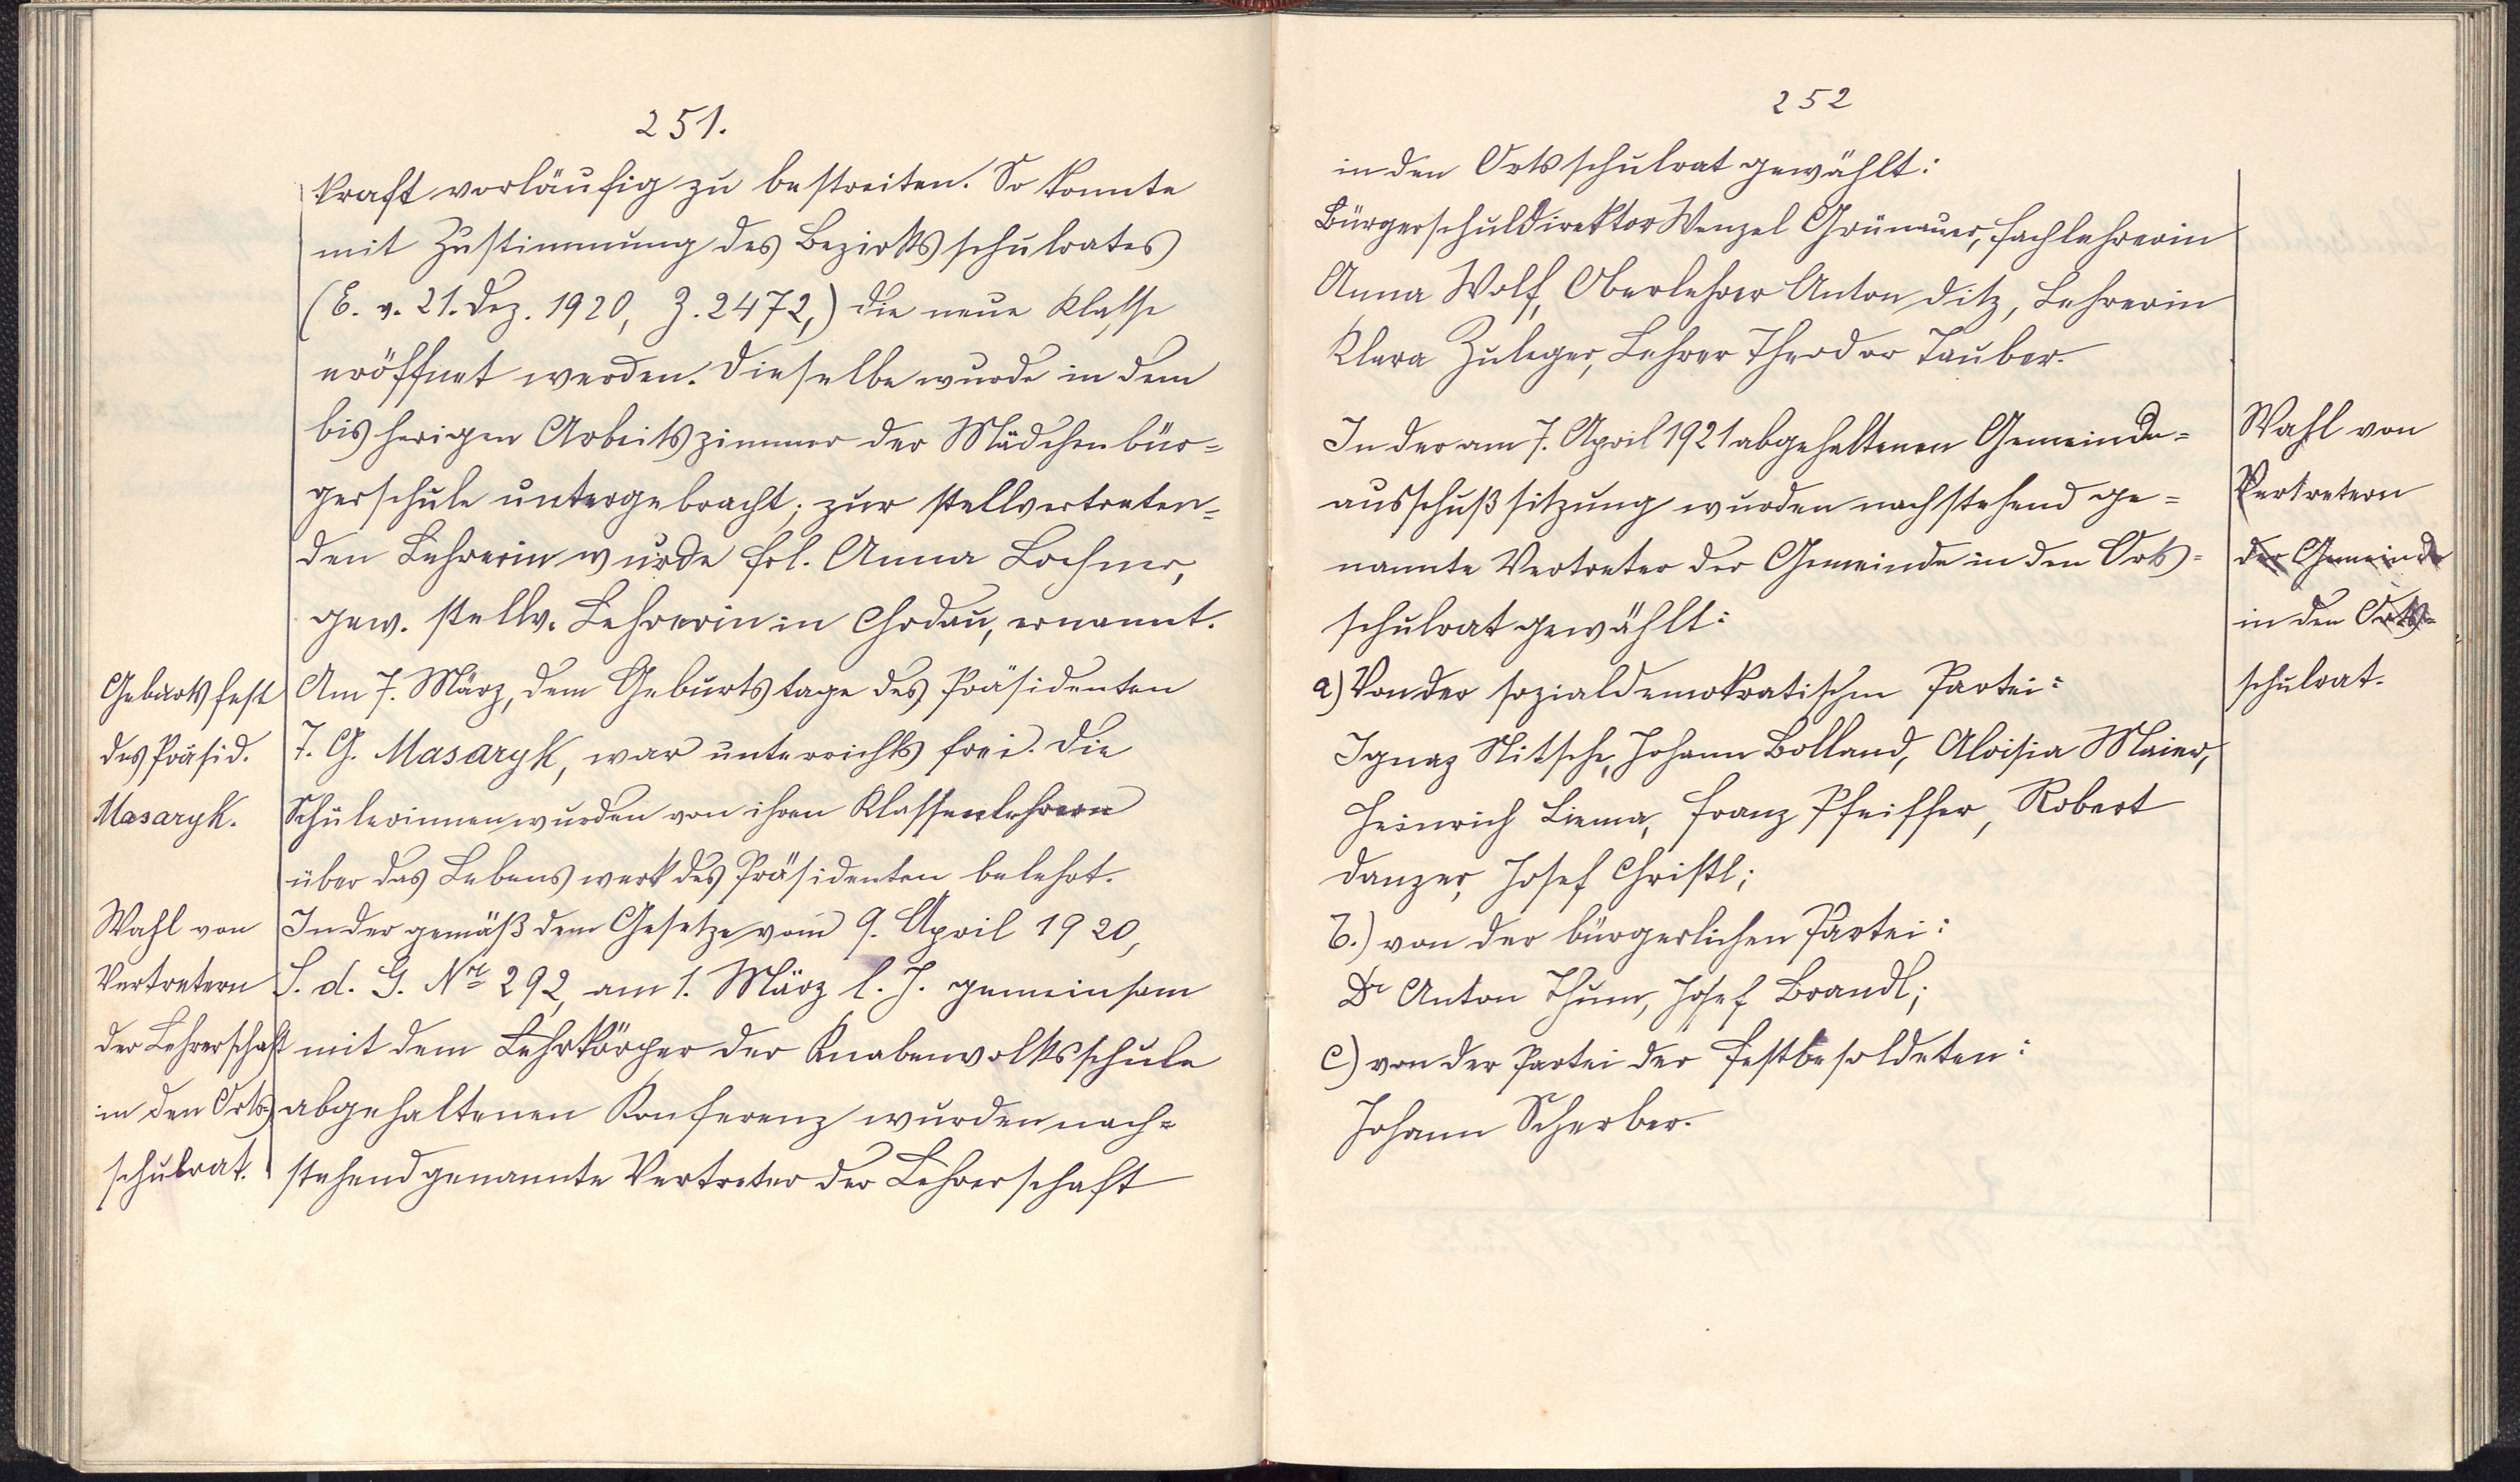 251.
kraft vorläufig zu bestreiten. So konnte
mit Zustimmung des Bezirksschulrates
(E. v. 21. Dez. 1920, Z. 2472,) die neue Klasse
eröffnet werden. Dieselbe wurde in dem
bisherigen Arbeitszimmer der Mädchenbür=
gerschule untergebracht; zur stellvertreten=
den Lehrerin wurde Frl. Anna Lochner,
gew. stellv. Lehrerin in Chodau, ernannt.
Geburtsfest
des Präsid.
Masaryk.
Am 7. März, dem Geburtstage des Präsidenten
T. G. Masaryk, war unterrichtsfrei. Die
Schülerinnen wurden von ihren Klassenlehrern
über das Lebenswerk des Präsidenten belehrt.
Wahl von
Vertretern
der Lehrerschaft
in den Orts=
schulrat.
In der gemäß dem Gesetze vom 9. April 1920,
S. d. G. Nr 292, am 1. März l. J. gemeinsam
mit dem Lehrkörper der Knabenvolksschule
abgehaltenen Konferenz wurden nach=
stehend genannte Vertreter der Lehrerschaft
252
in den Ortsschulrat gewählt:
Bürgerschuldirektor Wenzel Grünauer, Fachlehrerin
Anna Wolf, Oberlehrer Anton Ditz, Lehrerin
Klara Zuleger, Lehrer Theodor Tauber.
Wahl von
Vertretern
der Gemeinde
in den Orts=
schulrat.
In der am 7. April 1921 abgehaltenen Gemeinde=
ausschußsitzung wurden nachstehend ge=
nannte Vertreter der Gemeinde in den Orts=
schulrat gewählt:
a) Von der sozialdemokratischen Partei:
Ignaz Nitsche, Johann Bolland, Aloisia Maier,
Heinrich Liema, Franz Pfeiffer, Robert
Danzer, Josef Christl;
b.) von der bürgerlichen Partei:
Dr Anton Thum, Josef Brandl;
c) von der Partei der Festbesoldeten:
Johann Scherber.